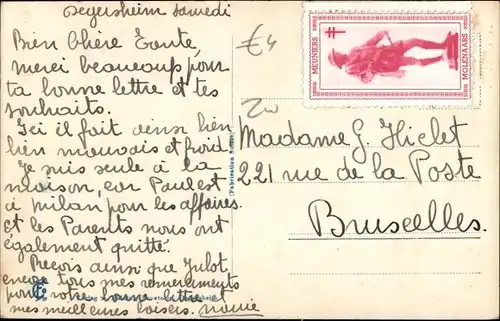 Degersheim Samedi
Bien Chère Tante,
merci beaucoup pour
ta bonne lettre et tes
souhaits.
Ici il fait aussi bien
bien mauvais et froid
Je suis seule à la
maison, car Paul est
à Milan pour les affaires.
et les Parents nous ont
également quitté.
Reçois ainsi que Julot
encore tous mes remerciements
pour votre bonne lettre et
mes meilleures baisers.
€4
MEUNIERS
MOLENAARS
Madame G. Hiclet
221 rue de la Poste
Bruxelles.